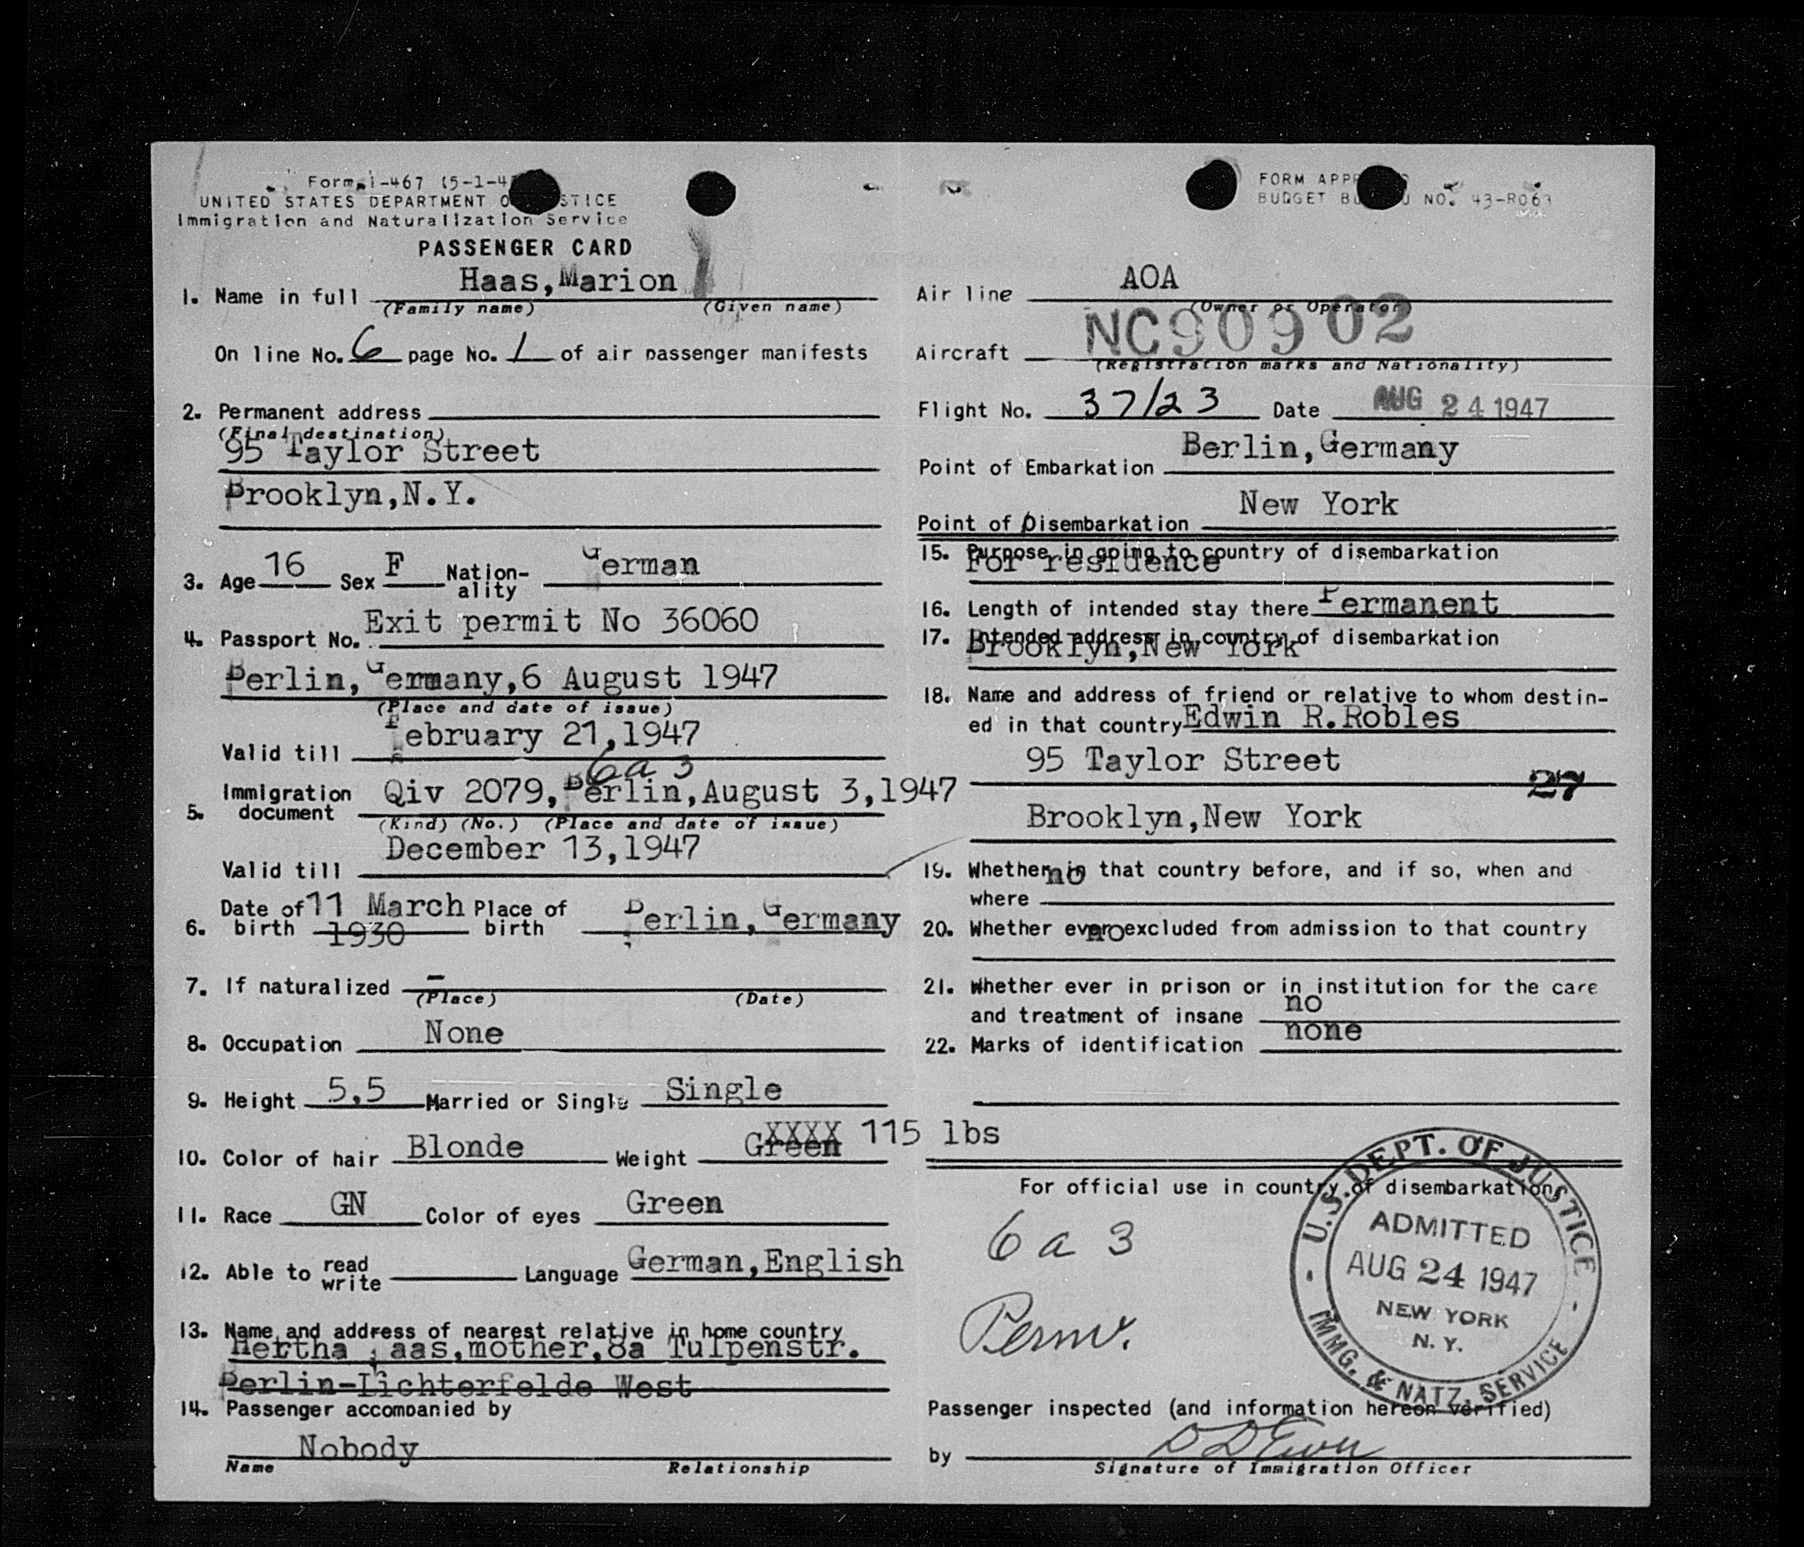 Form I-467 (5-1-4
UNITED STATES DEPARTMENT OF JUSTICE
Immigration and Naturalization Service
PASSENGER CARD
1. Name in full Haas,Marion
(Family name) (Given name)
On line No. 6 page No. 1 of air passenger manifests
2. Permanent address
(Final destination)
95 Taylor Street
Brooklyn,N.Y.
3. Age 16 Sex F Nation-ality German
4. Passport No. Exit permit No 36060
Berlin,Germany,6 August 1947
(Place and date of issue)
Valid till February 21,1947
6a3
5. Immigration document Qiv 2079,Berlin,August 3,1947
(Kind) (No.) (Place and date of issue)
Valid till December 13,1947
6. Date of birth 11 March 1930 Place of birth Berlin,Germany
7. If naturalized -
(Place) (Date)
8. Occupation None
9. Height 5,5 Married or Single Single
10. Color of hair Blonde Weight Green XXXX 115 lbs
11. Race GN Color of eyes Green
12. Able to read write Language German,English
13. Name and address of nearest relative in home country
Hertha Haas,mother,8a Tulpenstr.
Berlin-Lichterfelde West
14. Passenger accompanied by
Nobody
Name Relationship
FORM APPROVED
BUDGET BUREAU NO. 43-R063
Air line AOA
(Owner or Operator)
Aircraft NC90902
(Registration marks and Nationality)
Flight No. 37/23 Date AUG 24 1947
Point of Embarkation Berlin,Germany
Point of Disembarkation New York
15. Purpose in going to country of disembarkation
For residence
16. Length of intended stay there Permanent
17. Intended address in country of disembarkation
Brooklyn,New York
18. Name and address of friend or relative to whom destin-
ed in that country Edwin R.Robles
95 Taylor Street
27
Brooklyn,New York
19. Whether in that country before, and if so, when and
no
where
20. Whether ever excluded from admission to that country
no
21. Whether ever in prison or in institution for the care
and treatment of insane no
22. Marks of identification none
For official use in country of disembarkation
6 a 3
Perm.
U.S. DEPT. OF JUSTICE
ADMITTED
AUG 24 1947
NEW YORK
N. Y.
IMMG. & NATZ. SERVICE
Passenger inspected (and information hereon verified)
by
Signature of Immigration Officer